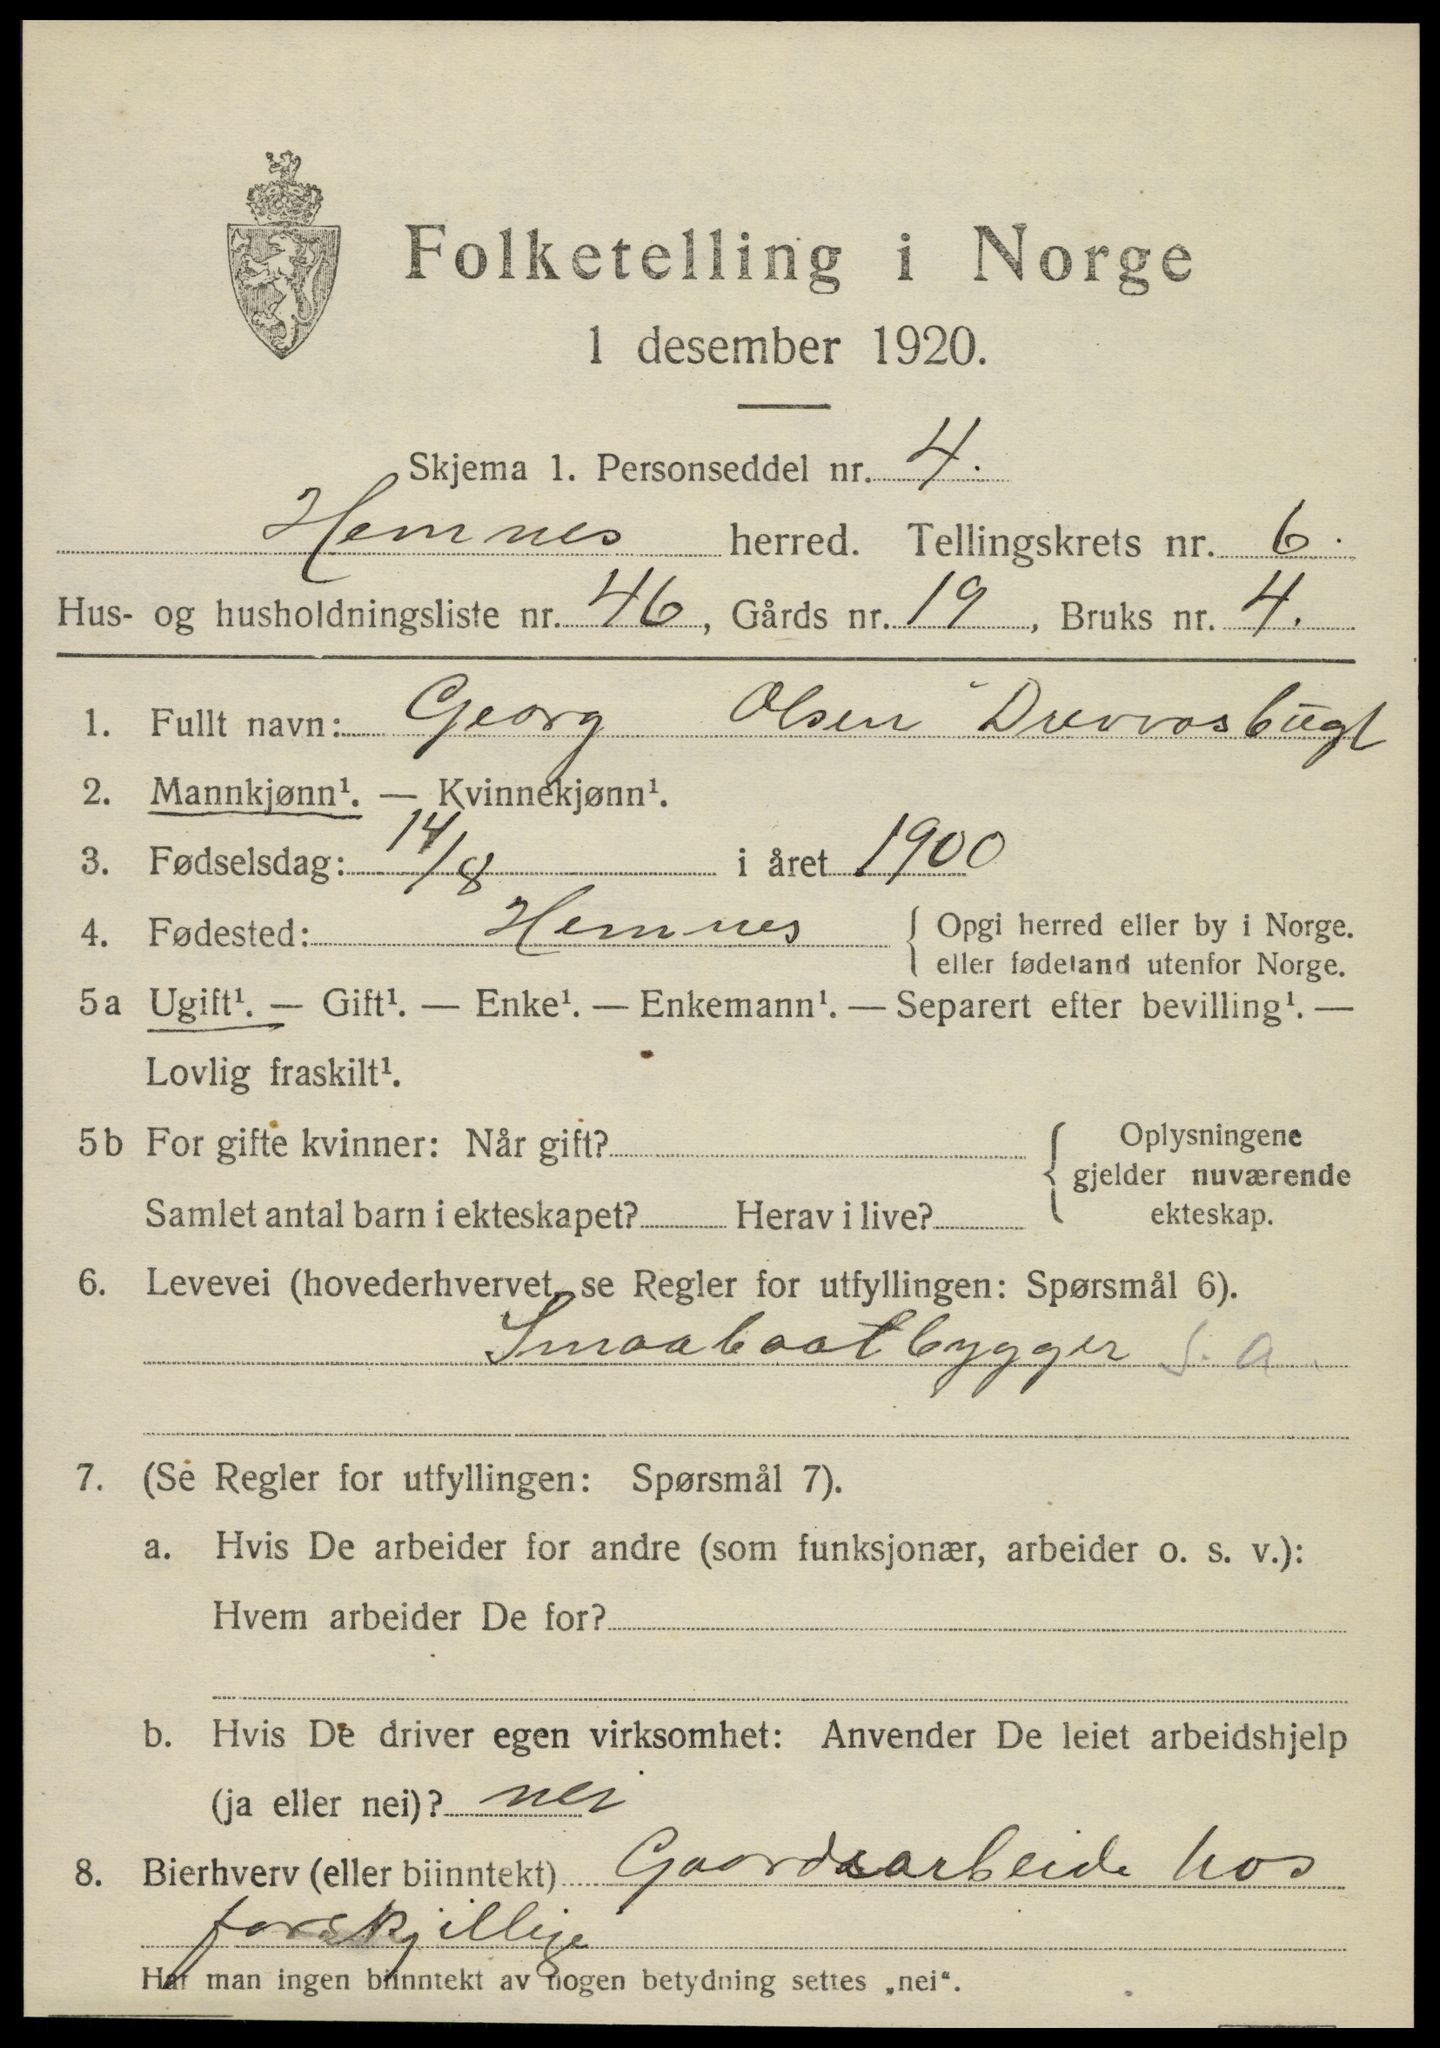 Folketelling i Norge
1 desember 1920.
Skjema 1. Personseddel nr. 4.
Hemnes herred. Tellingskrets nr. 6.
Hus- og husholdningsliste nr. 46, Gårds nr. 19, Bruks nr. 4.
1. Fullt navn: Georg Olsen
2. Mannkjønn¹. — Kvinnekjønn¹.
3. Fødselsdag: 14/8 i året 1900
4. Fødested: Hemnes { Opgi herred eller by i Norge.
eller fødeland utenfor Norge.
5a Ugift¹. — Gift¹. — Enke¹. — Enkemann¹. — Separert efter bevilling¹. —
Lovlig fraskilt¹.
5b For gifte kvinner: Når gift? { Oplysningene
gjelder nuværende
Samlet antal barn i ekteskapet? Herav i live? ekteskap.
6. Levevei (hovederhvervet, se Regler for utfyllingen: Spørsmål 6).
Smaabaatbygger S. a.
7. (Se Regler for utfyllingen: Spørsmål 7).
a. Hvis De arbeider for andre (som funksjonær, arbeider o. s. v.):
Hvem arbeider De for?
b. Hvis De driver egen virksomhet: Anvender De leiet arbeidshjelp
(ja eller nei)? nei
8. Bierhverv (eller biinntekt) Gaardsarbeide hos
forskjellige
Har man ingen biinntekt av nogen betydning settes „nei“.